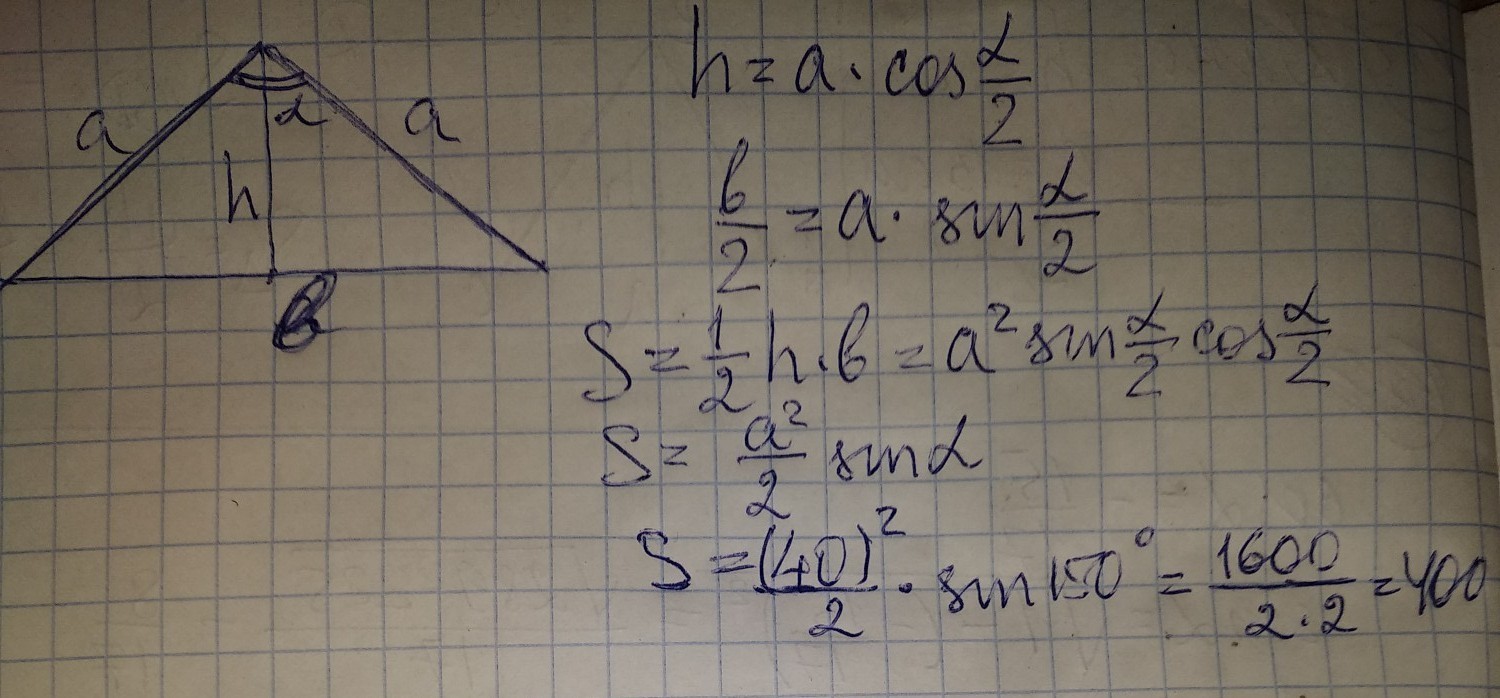 a
α
a
h
b
h = a · cos α/2
b/2 = a · sin α/2
S = 1/2 h · b = a² sin α/2 cos α/2
S = a²/2 sin α
S = (40)²/2 · sin 150° = 1600/2·2 = 400